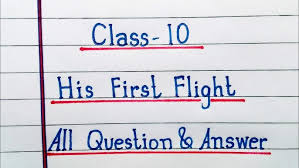 Class-10
His First Flight
All Question & Answer